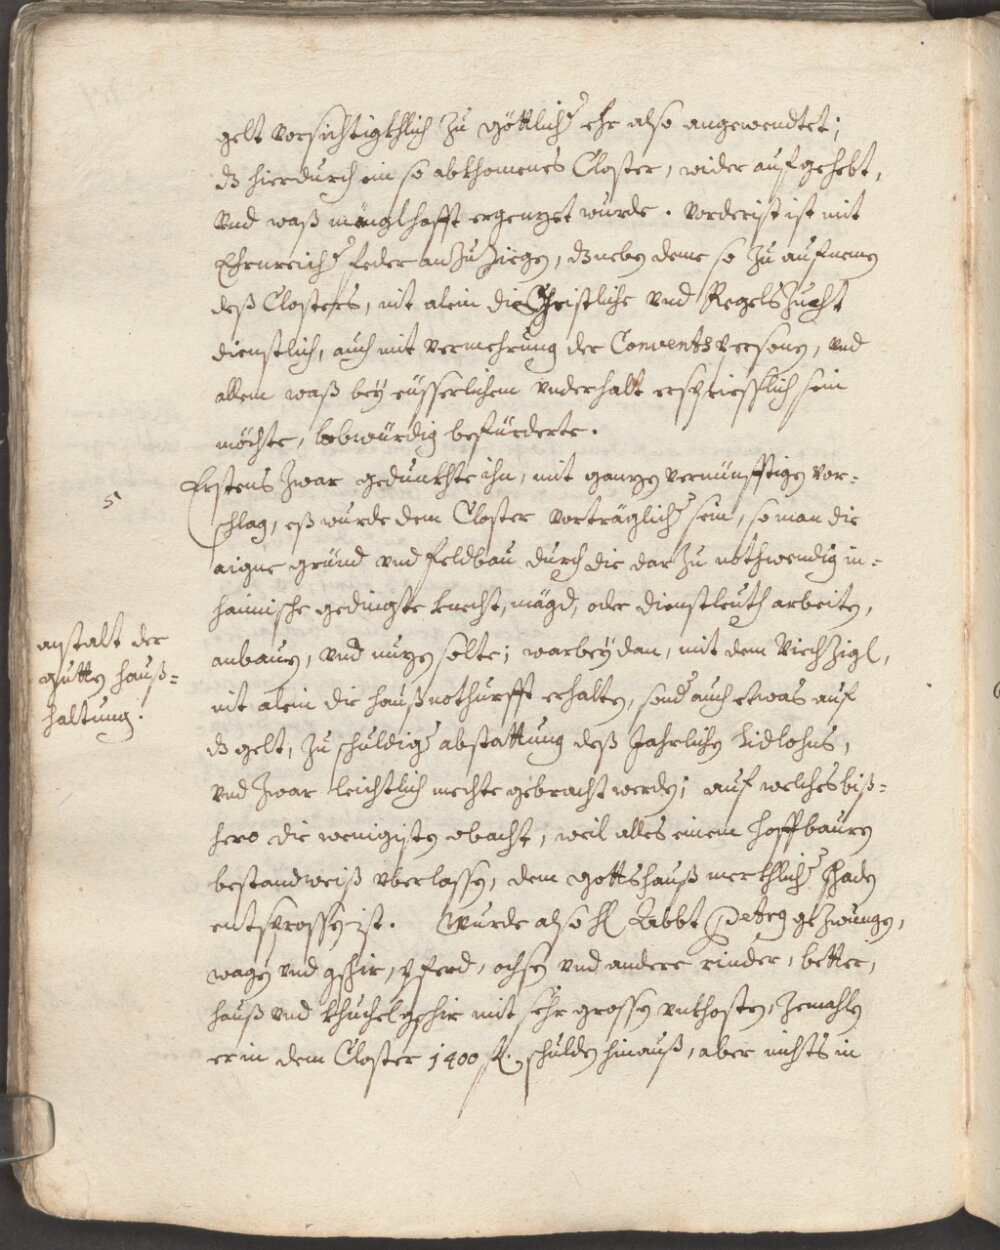 gelt vorsichtigkhlich zu göttlicher ehr also angewendtet;
dz hierdurch ein so abkhomenes Closter, wider aufgehebt,
vnd waß mänglhafft ergenzet wurde. vorderist ist mit
Ehrnreicher feder anzuziegen, dz neben deme so zu aufnemen
deß Closters, nit alein die Christliche vnd Regels Zucht
dienstlich, auch mit vermehrung der Convents personen, vnd
allem waß bey eüsserlichem vnderhalt ersprießlich sein
möchte, lobwürdig befürderte.
5 Erstens zwar gedunkhte ihn, mit ganzen vernünfftigen vor-
schlag, eß wurde dem Closter vorträglicher sein, so man die
aigne gründ vnd feldbau durch die darzu nothwendig in-
haimische gedingte knecht, mägd, oder dienstleuth arbeiten,
anbauen, vnd nuzen solte; warbey dan, mit dem Viechzigl,
nit alein die haußnothurfft erhalten, sond auch etwas auf
dz gelt, zu schuldiger abstattung deß Jahrlichen Lidlohns,
vnd zwar leichtlich mechte gebracht werden; auf welches biß-
hero die wenigisten obacht, weil alles einem hoffbauren
bestandweiß vberlassen, dem gottshauß merkhlicher schaden
entsprossen ist. Wurde also H Abbt Georg gezwungen,
wagen vnd gschir, pferd, ochsen vnd andere rinder, better,
hauß vnd khuchelgschir mit sehr grossen vnkhosten, zemahlen
er in dem Closter 1400 fl. schulden hinauß, aber nichts in
anstalt der
gutten hauß-
haltung.